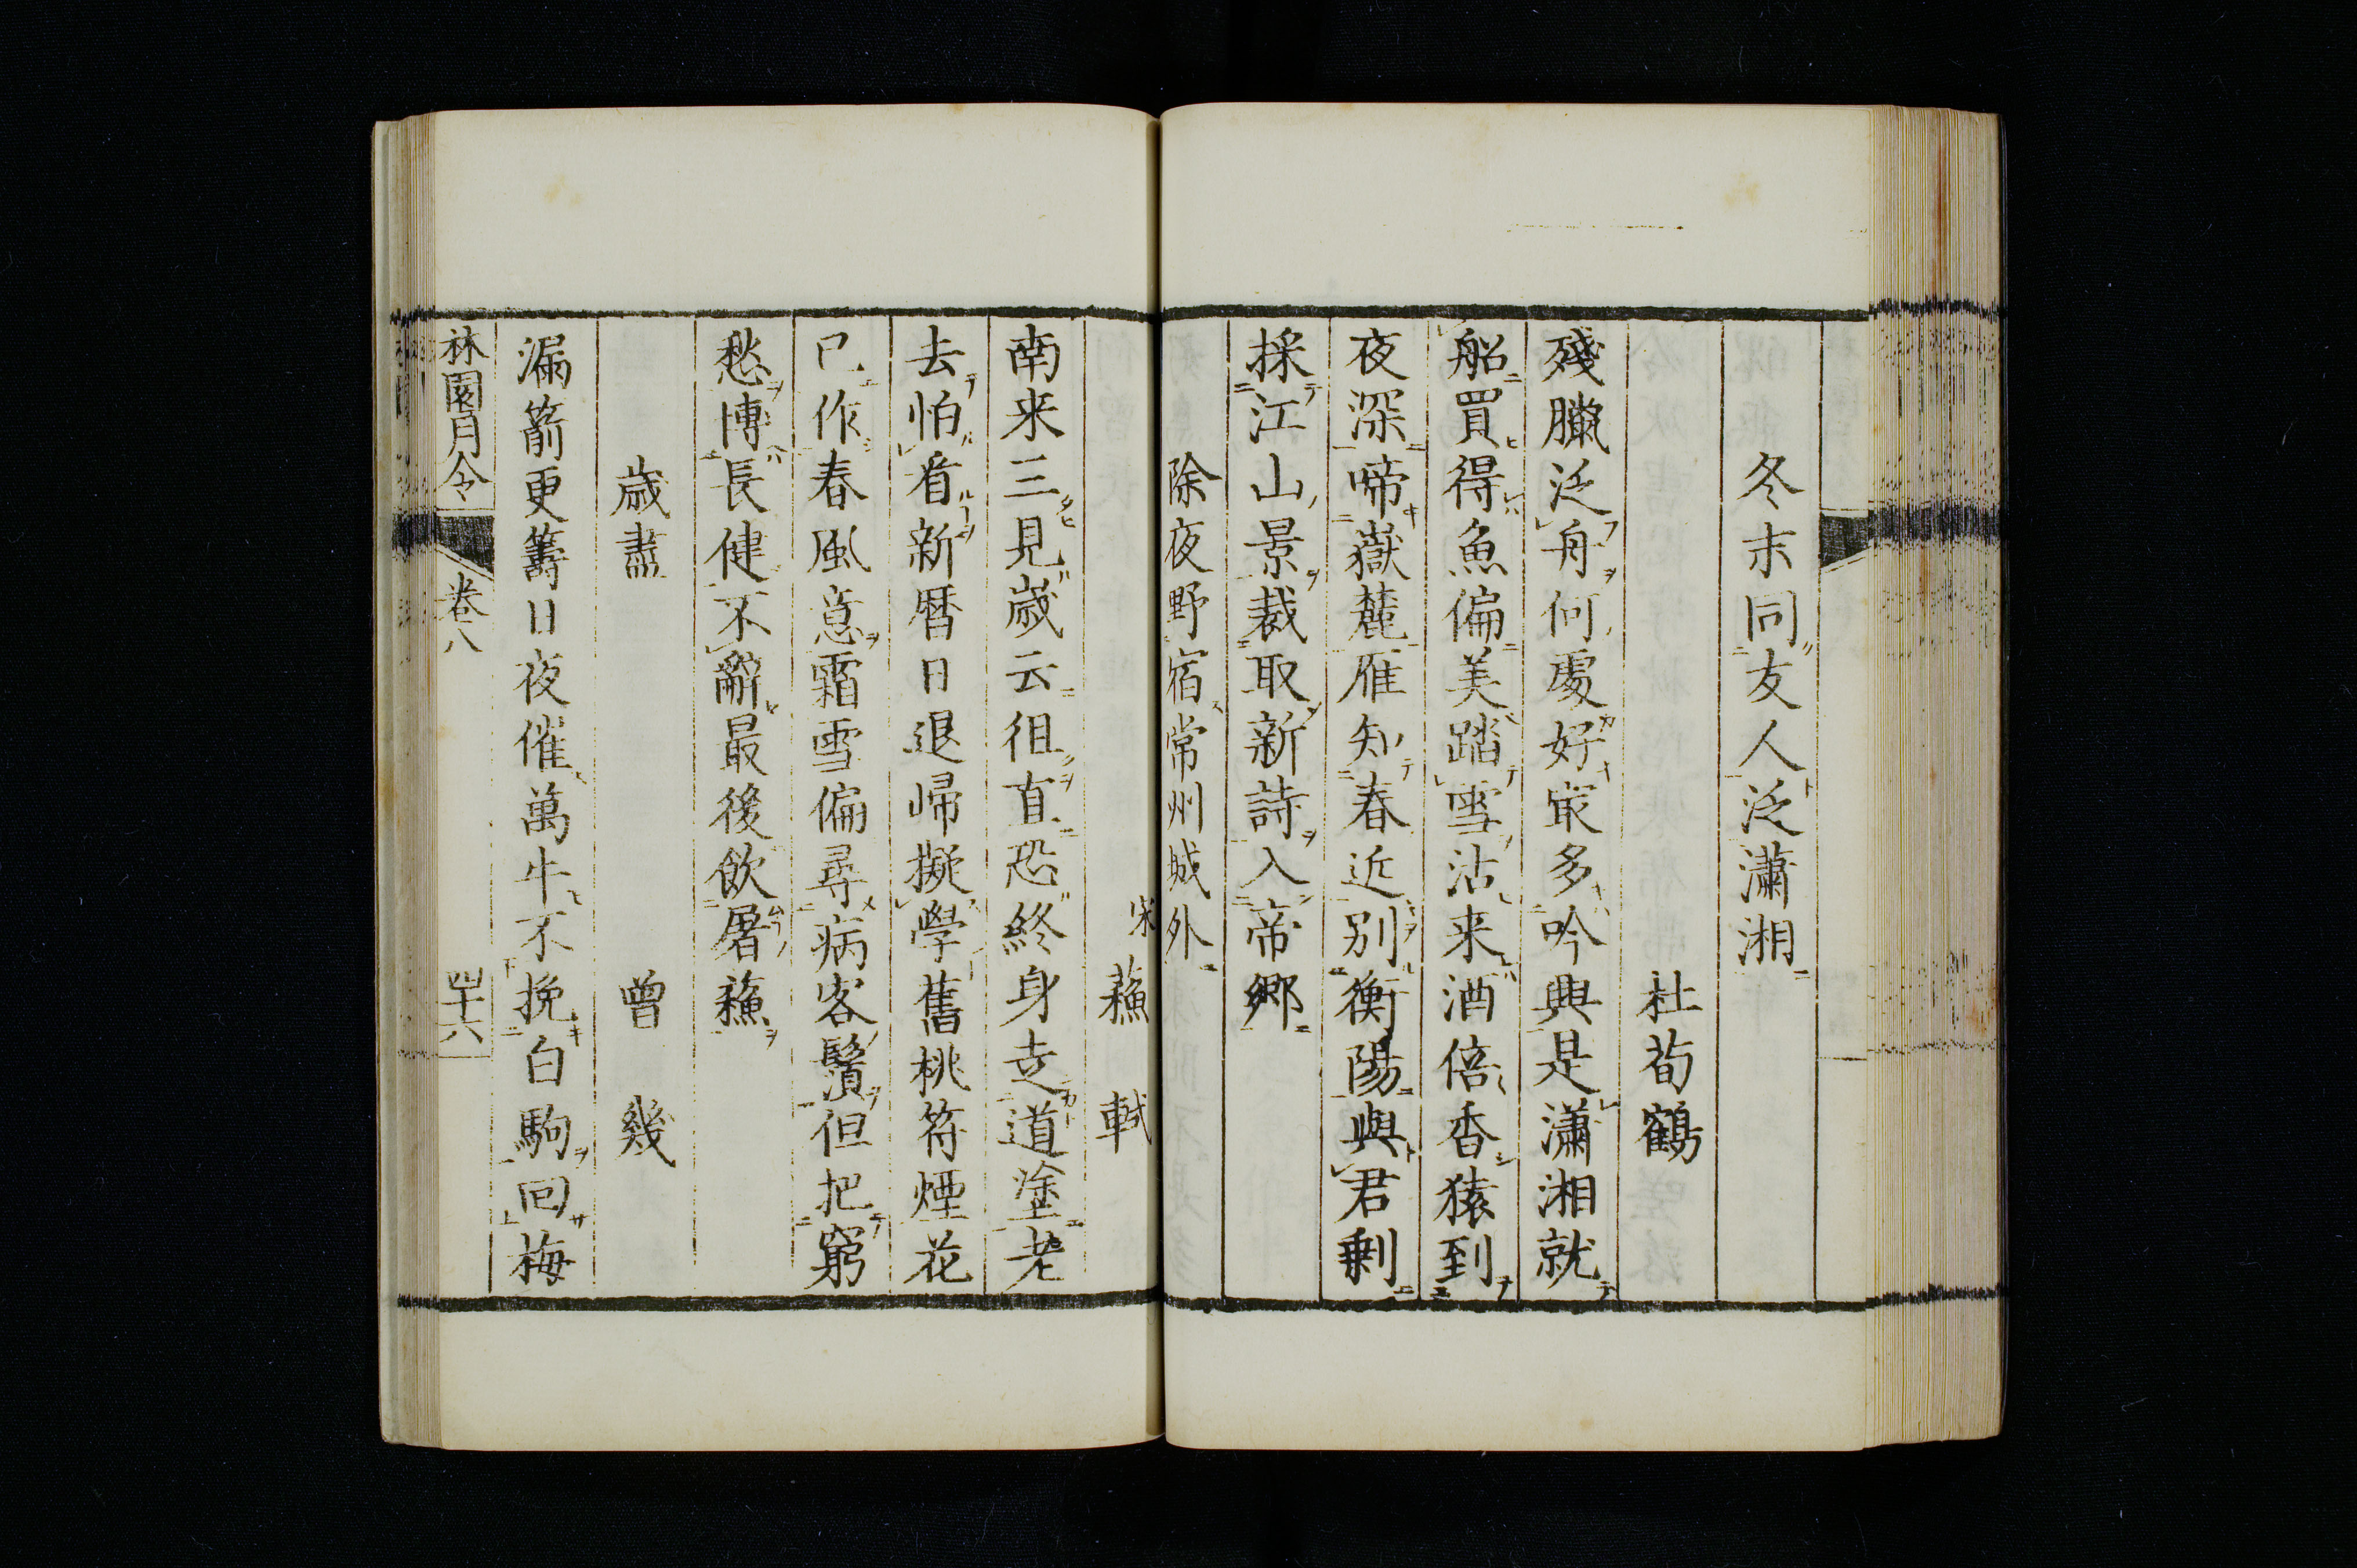 冬末同友人泛瀟湘
杜荀鶴
殘臘泛舟何處好最多吟興是瀟湘就
船買得魚偏美踏雪沽来酒倍香猿到
夜深啼嶽麓雁知春近别衡陽與君剩
採江山景裁取新詩入帝郷
除夜野宿常州城外
宋 蘓 軾
南来三見歲云徂直恐終身走道塗老
去怕看新暦日退歸擬學舊桃符煙花
已作春風意霜雪偏尋病客鬚但把窮
愁博長健不辭最後飲屠蘓
歳盡 曽 幾
漏箭更籌日夜催萬牛不挽白駒回梅
林園月令 卷八 四十六